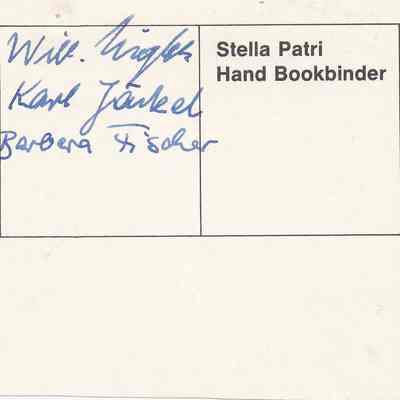 Will.
Karl Jäckel
Barbara Fischer
Stella Patri
Hand Bookbinder